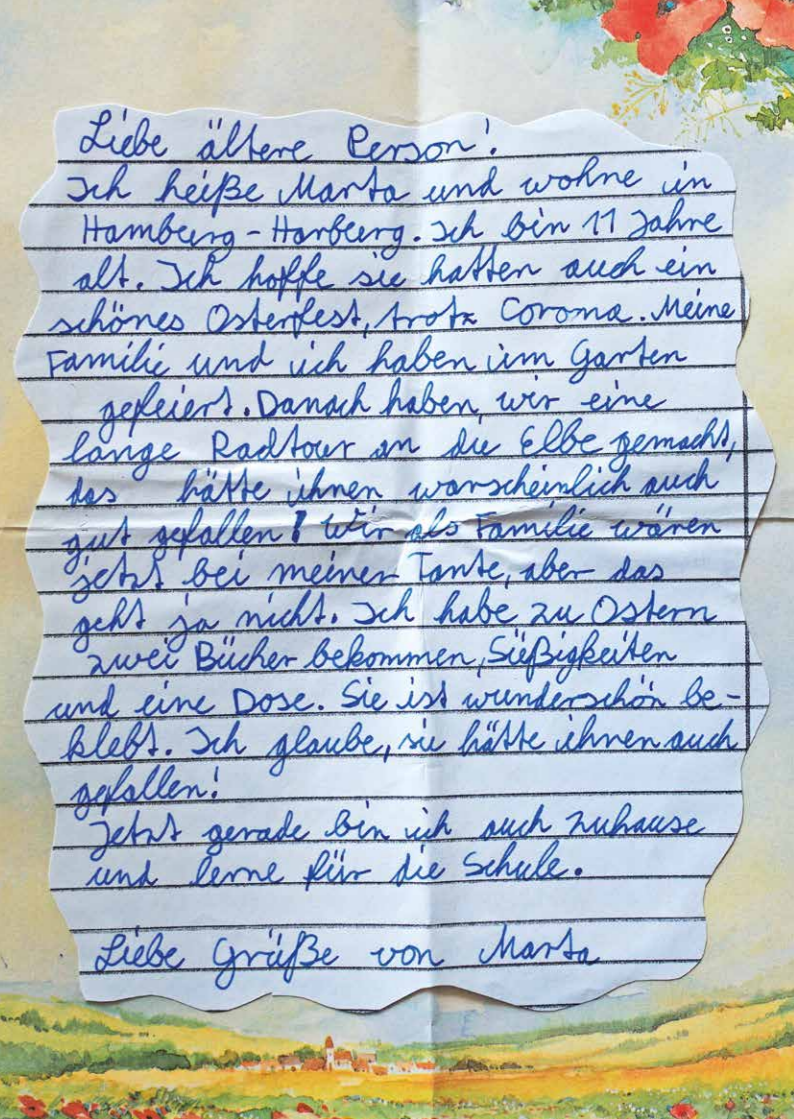 Liebe ältere Person!
Ich heiße Marta und wohne in
Hamburg-Harburg. Ich bin 11 Jahre
alt. Ich hoffe sie hatten auch ein
schönes Osterfest, trotz Corona. Meine
Familie und ich haben im Garten
gefeiert. Danach haben wir eine
lange Radtour an die Elbe gemacht,
das hätte ihnen warscheinlich auch
gut gefallen! Wir als Familie wären
jetzt bei meiner Tante, aber das
geht ja nicht. Ich habe zu Ostern
zwei Bücher bekommen, Süßigkeiten
und eine Dose. Sie ist wunderschön be-
klebt. Ich glaube, sie hätte ihnen auch
gefallen!
Jetzt gerade bin ich auch zuhause
und lerne für die Schule.
Liebe Grüße von Marta